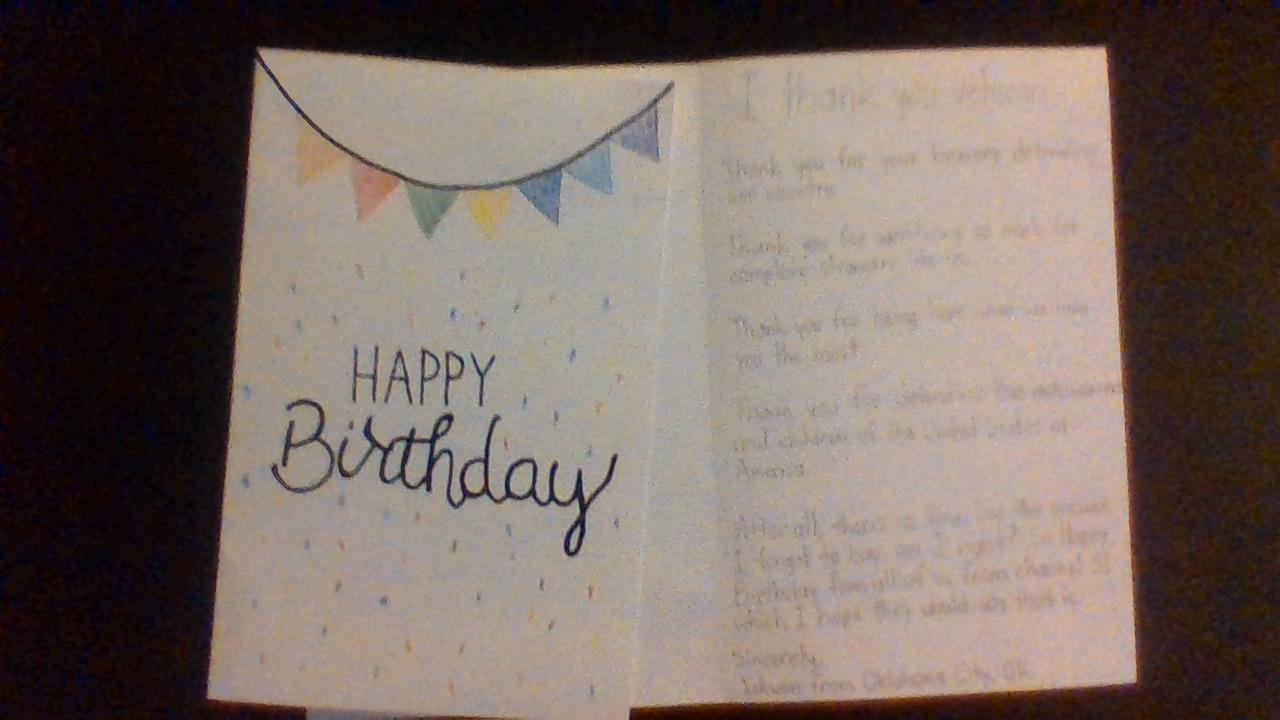 HAPPY
Birthday
I thank you veteran
Thank you for your bravery defending
our country.
Thank you for sacrificing so much for
complete strangers like us.
Thank you for being here when we need
you the most
Thank you for defending the
and children of the United States of
America.
After all, there's no time like the present
I forgot to buy, am I right? So Happy
Birthday from all of us from channel 51
which I hope they would say that is.
Sincerely,
from Oklahoma City, OK